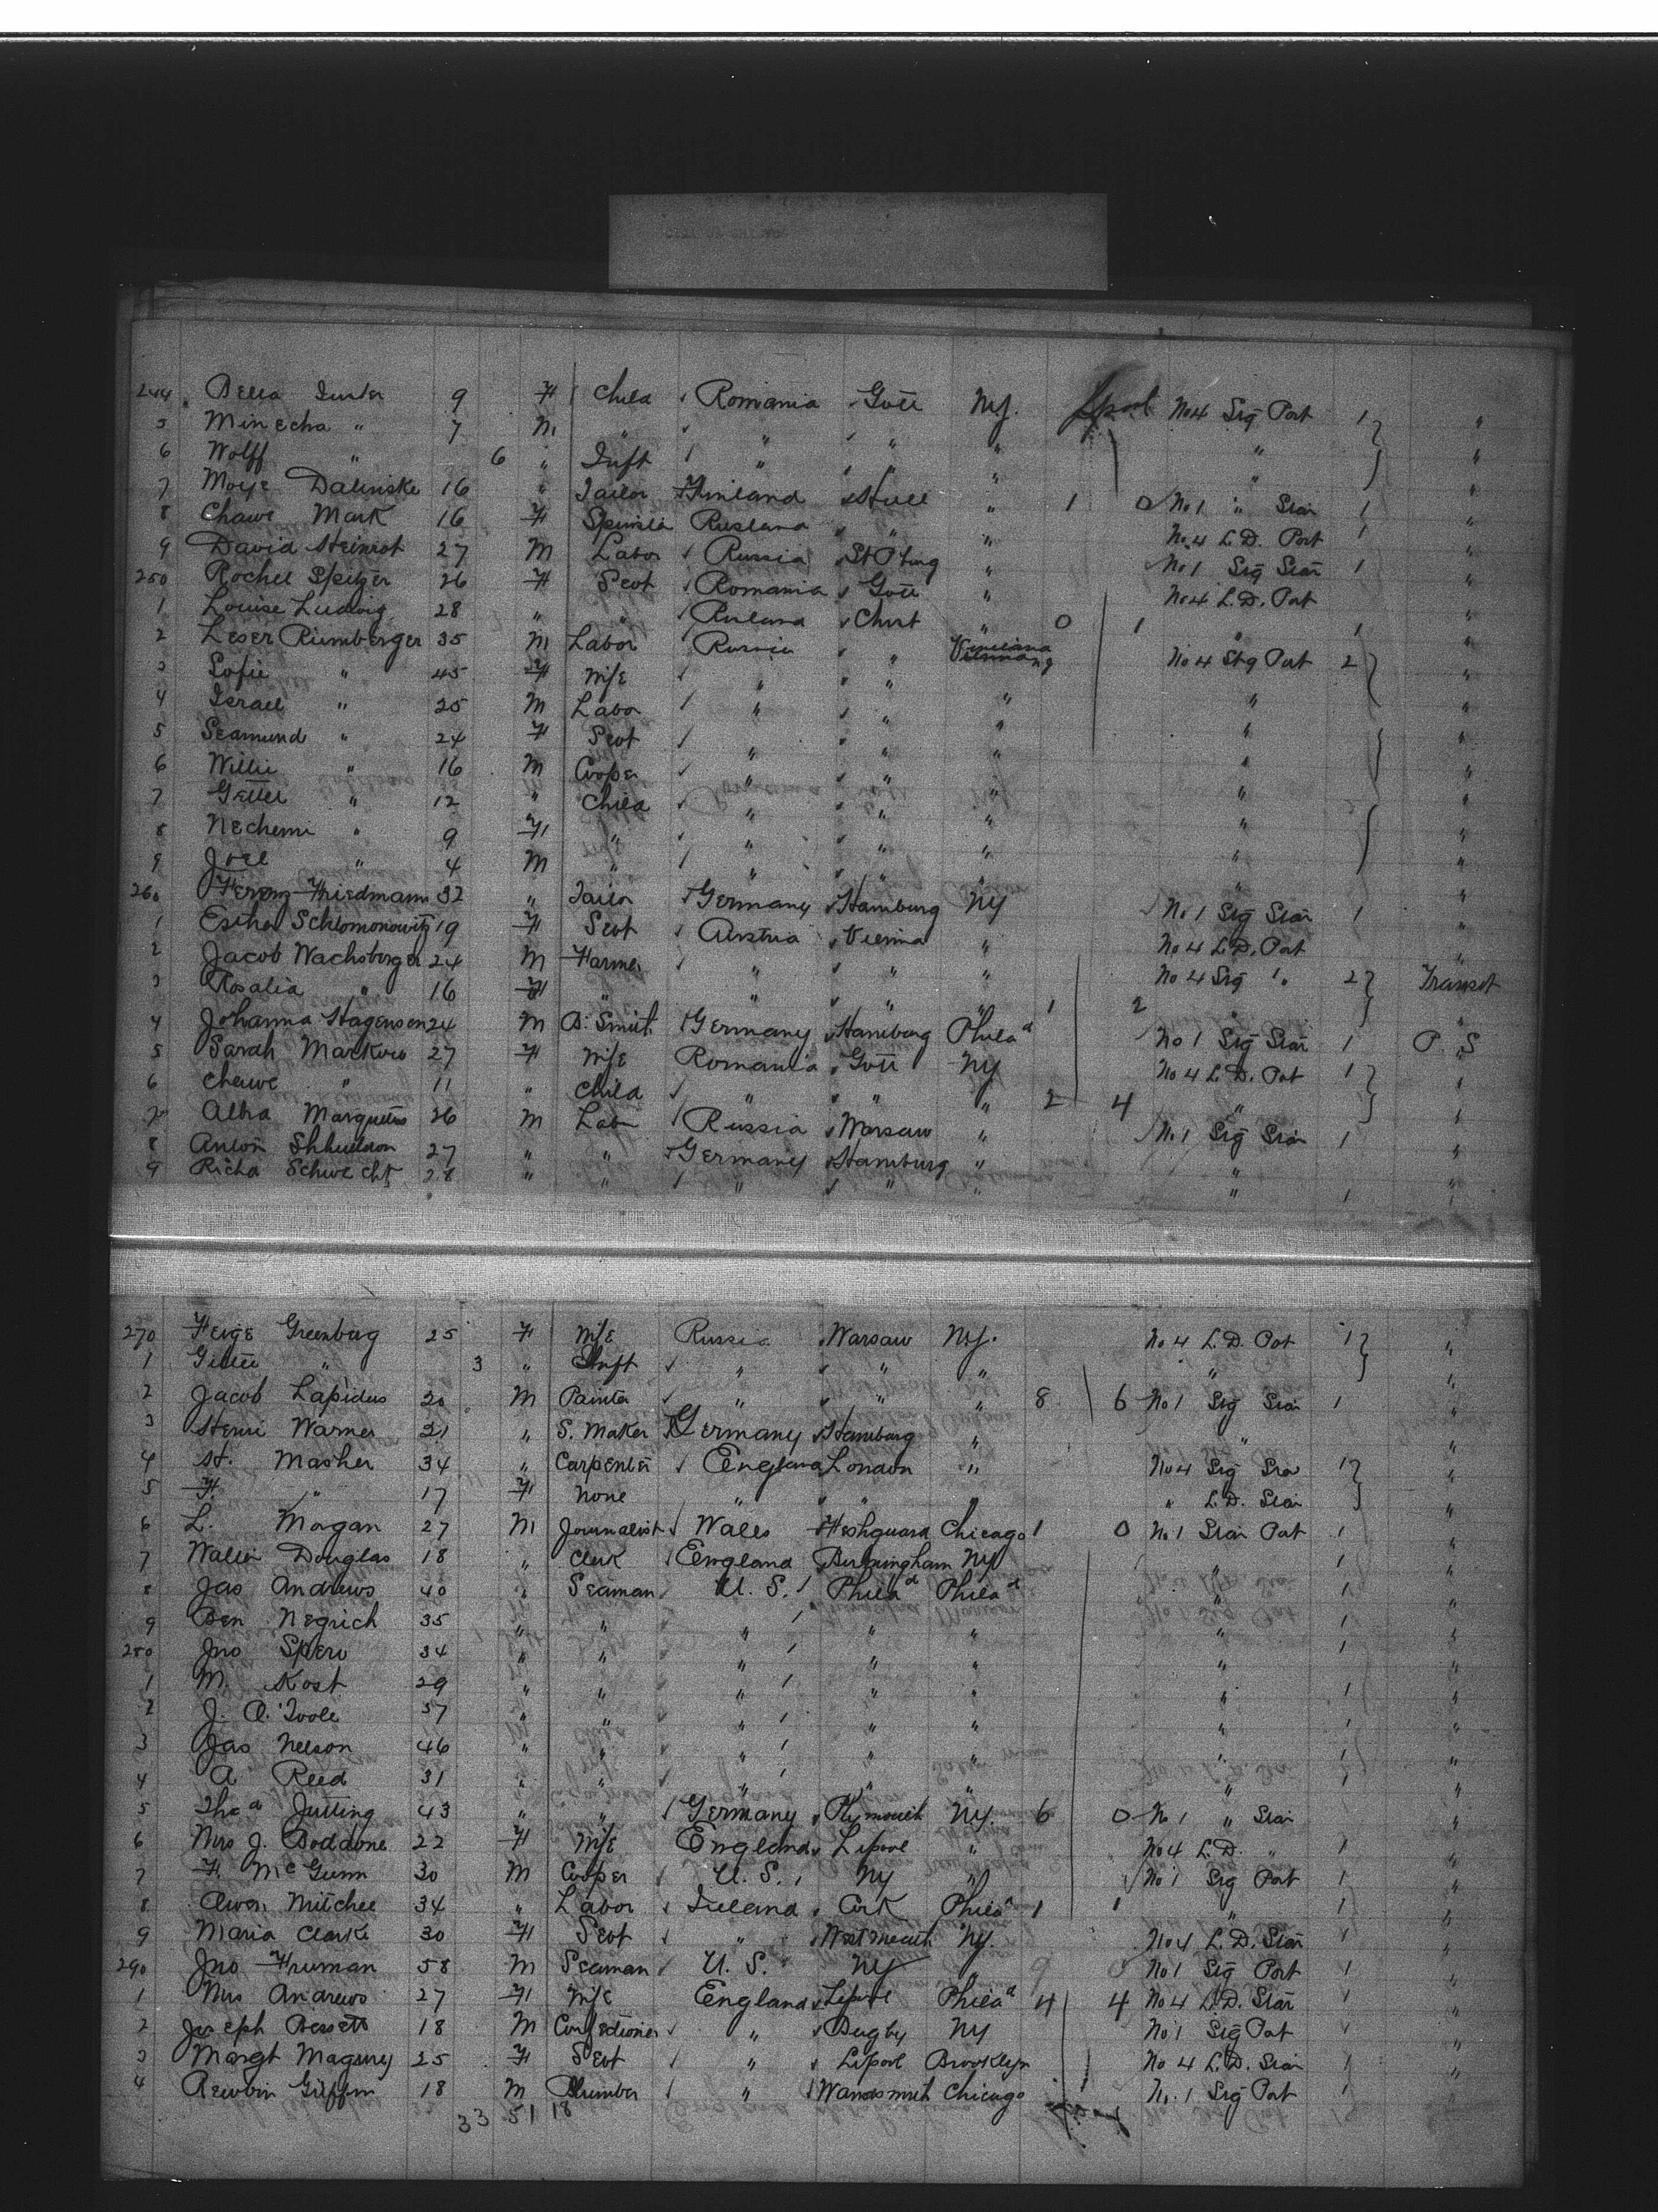 244 Bella 9 F Child Romania Gott NY. Lpool No 4 Stg Port 1 "
5 Minecha " 7 M " " " " "
6 Wolff " 6 " Inft " " " " "
7 Dalinske 16 " Tailor Finland Hull " 1 0 No 1 " Star 1 "
8 Chawe Mark 16 F " " No 4 L.D. Port 1 "
9 David Steinrot 27 M Labor Russia " No 1 Stg Star 1 "
250 Rochel Spitzer 26 F Sevt Romania Gott " No 4 L.D. Port "
1 Louise Ludwig 28 " " " 0 1 " 1 "
2 Leser Rumberger 35 M Labor Russia " No 4 Stg Port 2 "
3 Sofie " 45 F Wife " " " "
4 Israel " 25 M Labor " " " " "
5 " 24 F Sevt " " " " "
6 Willie " 16 M Cooper " " " " "
7 " 12 " Child " " " " "
8 Nechemi " 9 F " " " " " "
9 Joel " 4 M " " " " " "
260 Friedmann 32 " Tailor Germany Hamburg NY No 1 Stg Star 1 "
1 Esther Schlomonowitz 19 F Sevt Austria Vienna " No 4 L.D. Port "
2 Jacob Wachsberger 24 M Farmer " " " No 4 Stg " 2 Transit
3 Rosalia " 16 F " " " " 1 2 " "
4 Johanna Hagensen 24 M B. Smith Germany Hamburg Philad No 1 Stg Star 1 P.S
5 Sarah 27 F Wife Romania Gott NY No 4 L.D. Port 1 "
6 Chawe " 11 " Child " " " 2 4 " "
7 26 M Labr Russia Warsaw " No 1 Stg Star 1 "
8 Anton 27 " " Germany Hamburg " " "
9 Richa Schwecht 28 " " " " " " 1 "
270 Feige Greenberg 25 F Wife Russia Warsaw NY. No 4 L.D. Port 1 "
1 " 3 " Inft " " " " "
2 Jacob Lapidus 20 M Painter " " " 8 6 No 1 Stg Star 1 "
3 Henri Warner 21 " S. Maker Germany Hamburg " " "
4 H. Masher 34 " Carpenter England London " No 4 Stg Star 1 "
5 F. " 17 F None " " " " L.D. Star "
6 L. Morgan 27 M Journalist Wales Chicago 1 0 No 1 Star Port 1 "
7 Walter Douglas 18 " Clerk England Birmingham NY " 1 "
8 Jas Andrews 40 " Seaman U.S. Philad Philad " 1 "
9 Ben Negrich 35 " " " " " " 1 "
280 Jno 34 " " " " " " 1 "
1 M. Kost 29 " " " " " " 1 "
2 J. O'Toole 37 " " " " " " 1 "
3 Jas Nelson 46 " " " " " " 1 "
4 A Reed 31 " " " " " " 1 "
5 Jutting 43 " " Germany Plymouth NY. 6 0 No 1 " Star "
6 Mrs J. Boddone 22 F Wife England Lpool " No 4 L.D. " 1 "
7 F. McGunn 30 M Cooper U.S. NY " No 1 Stg Port 1 "
8 Owen Mitchel 34 " Labor Ireland Cork Philad 1 1 " 1 "
9 Maria Clarke 30 F Sevt " Westmeath NY. No 4 L.D. Star 1 "
290 Jno Fruman 58 M Seaman U.S. NY No 1 Stg Port 1 "
1 Mrs Andrews 27 F Wife England Lpool Philad 4 4 No 4 L.D. Star 1 "
2 Joseph Bessett 18 M Confectioner " NY No 1 Stg Port 1 "
3 Margt 25 F Sevt " Lpool Brooklyn No 4 L.D. Star 1 "
4 Rewbin Griffin 18 M Plumber " Chicago No. 1 Stg Port 1 "
33 51 18